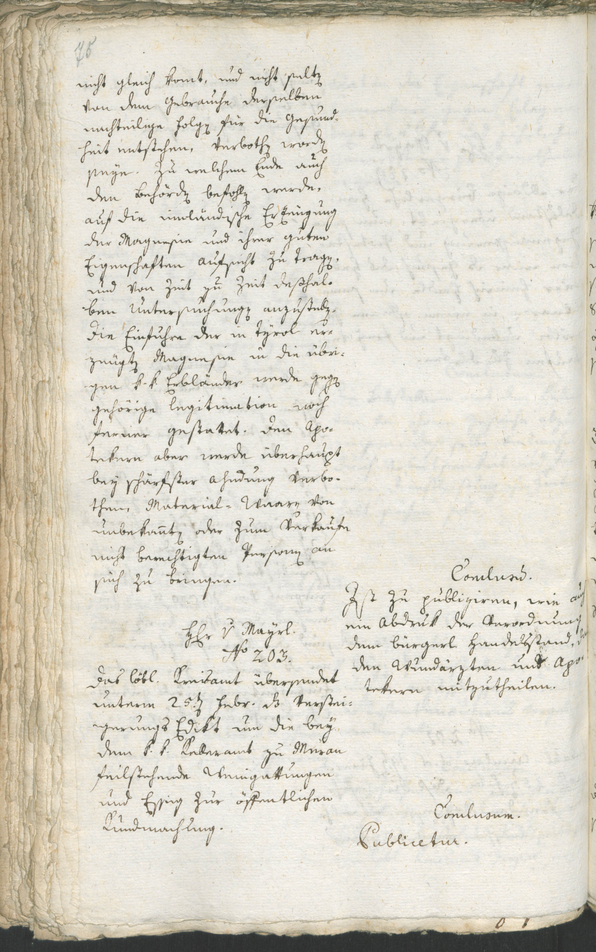 75
nicht gleich komt, und nicht selten
von dem Gebrauche derselben
nachteilige Folgen für die Gesund-
heit entstehen, verbothen worden
seye. Zu welchem Ende auch
den Behörden befohlen werde,
auf die innländische Erzeugung
der Magnesie und ihrer guten
Eigenschaften Aufsicht zu tragen,
und von Zeit zu Zeit deßhal-
ben Untersuchungen anzustellen.
Die Einfuhre der in Tyrol er-
zeugten Magnesie in die übri-
gen k. k. Erbländer werde gegen
gehörige Legitimation noch
ferner gestattet. Den Apo-
tekern aber werde überhaupt
bey schärfster Ahndung verbo-
then, Material-Waaren von
unbekannten oder zum Verkaufe
nicht berechtigten Personen an
sich zu bringen.
Conclusum.
Ist zu publiziren, wie auch
ein Abdruk der Verordnung
dem bürgerl. Handelsstand,
den Wundärzten und Apo-
tekern mitzutheilen.
Hr. v. Mayrl.
No 203.
Das löbl. Kreisamt übersendet
unterm 25. Febr. das Verstei-
gerungs Edikt um die bey
dem k. k. Kelleramt zu Meran
feilstehende Weingattungen
und Essig zur öffentlichen
Kundmachung.
Conclusum.
Publicetur.